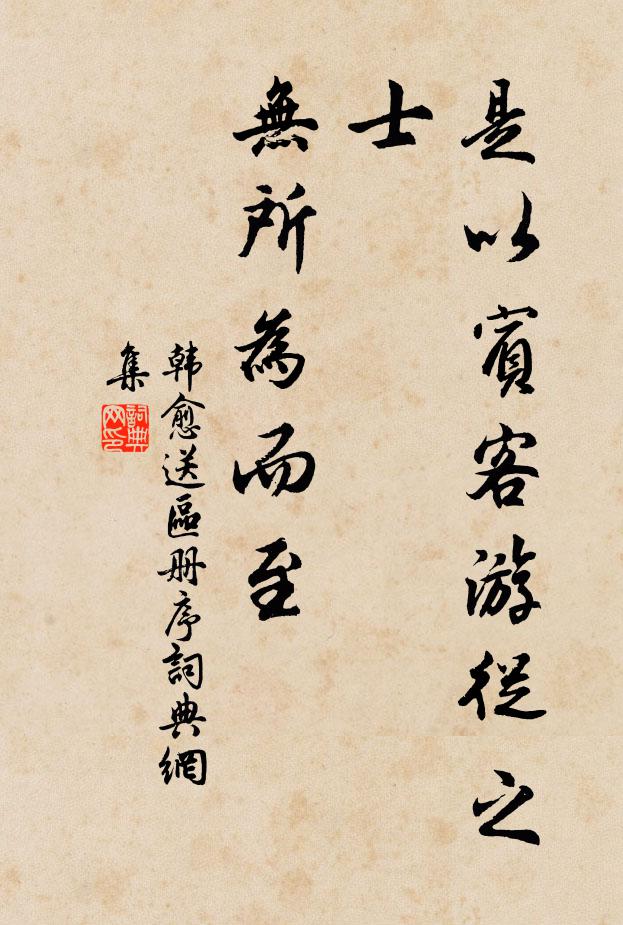 是以賓客游從之
士
無所為而至
韩愈送區册序詞典網
集
詞典
网印